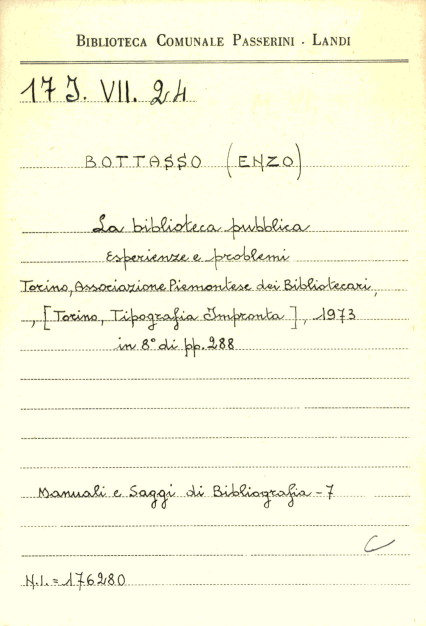 BIBLIOTECA COMUNALE PASSERINI - LANDI
17 J. VII. 24
BOTTASSO (ENZO)
La biblioteca pubblica
Esperienze e problemi
Torino, Associazione Piemontese dei Bibliotecari,
, [Torino, Tipografia Impronta], 1973
in 8° di pp. 288
Manuali e Saggi di Bibliografia - 7
C
N.I. = 176280